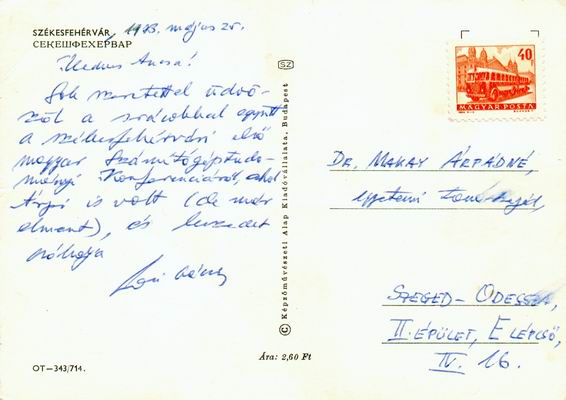 SZÉKESFEHÉRVÁR, 1973. május 25.
СЕКЕШФЕХЕРВАР
Kedves Anna!
Sok szeretettel üdvö-
zöl a srácokkal együtt
a székesfehérvári első
magyar Számítógéptudo-
mányi Konferenciáról, ahol
Árpi is volt (de már
elment), és kezedet
csókolja
SZ
© Képzőművészeti Alap Kiadóvállalata, Budapest
40f
MAGYAR POSTA
DR. MAKAY ÁRPÁDNÉ,
egyetemi tanársegéd,
SZEGED - ODESSZA,
II. ÉPÜLET, E LÉPCSŐ,
IV. 16.
Ára: 2,60 Ft
OT—343/714.